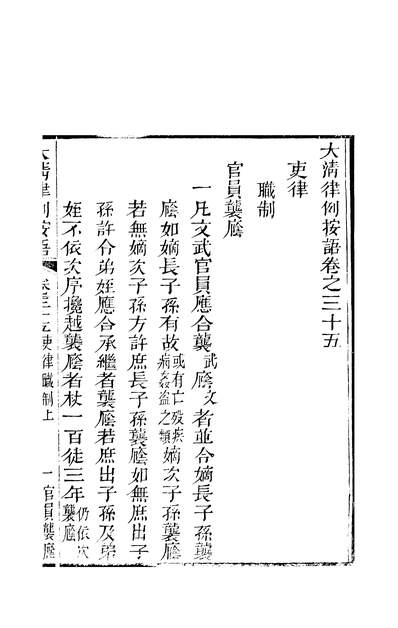 大清律例按語卷之三十五
吏律
職制
官員襲廕
一凡文武官員應合襲武廕文者並令嫡長子孫襲
廕如嫡長子孫有故或有亡歿疾病姦盜之類嫡次子孫襲廕
若無嫡次子孫方許庶長子孫襲廕如無庶出子
孫許令弟姪應合承繼者襲廕若庶出子孫及弟
姪不依次序攙越襲廕者杖一百徒三年仍依次襲廕
大清律例按語 卷三十五吏律職制上 一 官員襲廕